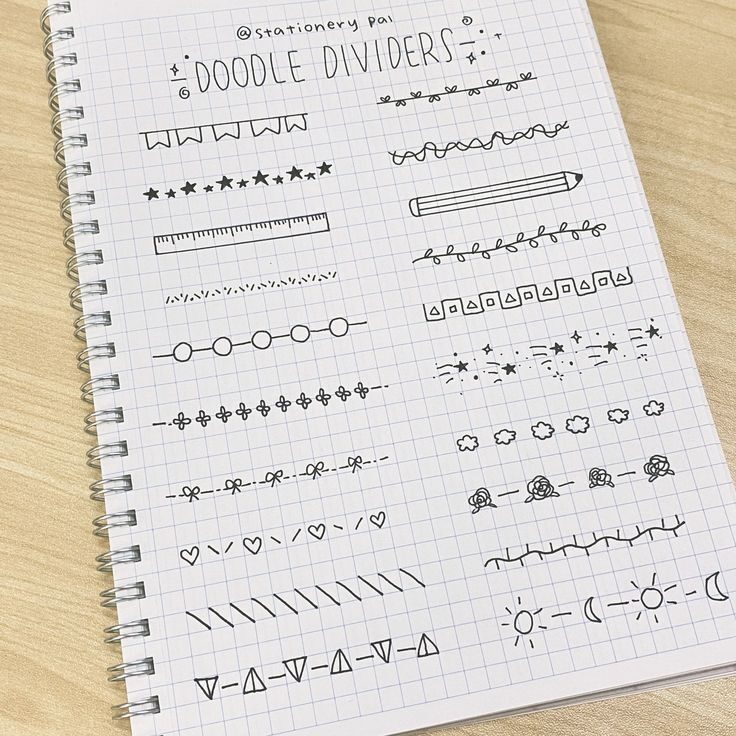 @stationery pal
DOODLE DIVIDERS